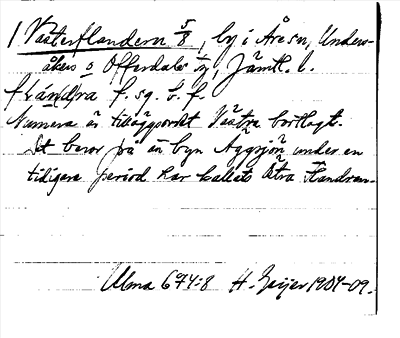 1 Västerflandern 5/8, by i Åre sn, Unders-
åkers o Offerdals tg, Jämtl. l.
flán(d)ra f. sg. b. f.
Numera är tilläggsordet Västra bortlagt.
Det beror på att byn Äggsjön under en
tidigare period har kallats Östra Flandran.
Ulma 674:8 H. Geijer 1907-09.